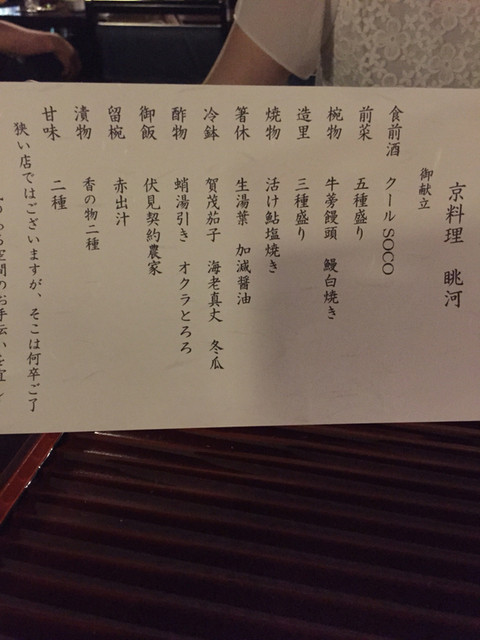 京料理 眺河
御献立
食前酒 クール SOCO
前菜 五種盛り
椀物 牛蒡饅頭 鰻白焼き
造里 三種盛り
焼物 活け鮎塩焼き
箸休 生湯葉 加減醤油
冷鉢 賀茂茄子 海老真丈 冬瓜
酢物 蛸湯引き オクラとろろ
御飯 伏見契約農家
留椀 赤出汁
漬物 香の物二種
甘味 二種
狭い店ではございますが、そこは何卒ご了
空間のお手伝いを宜し